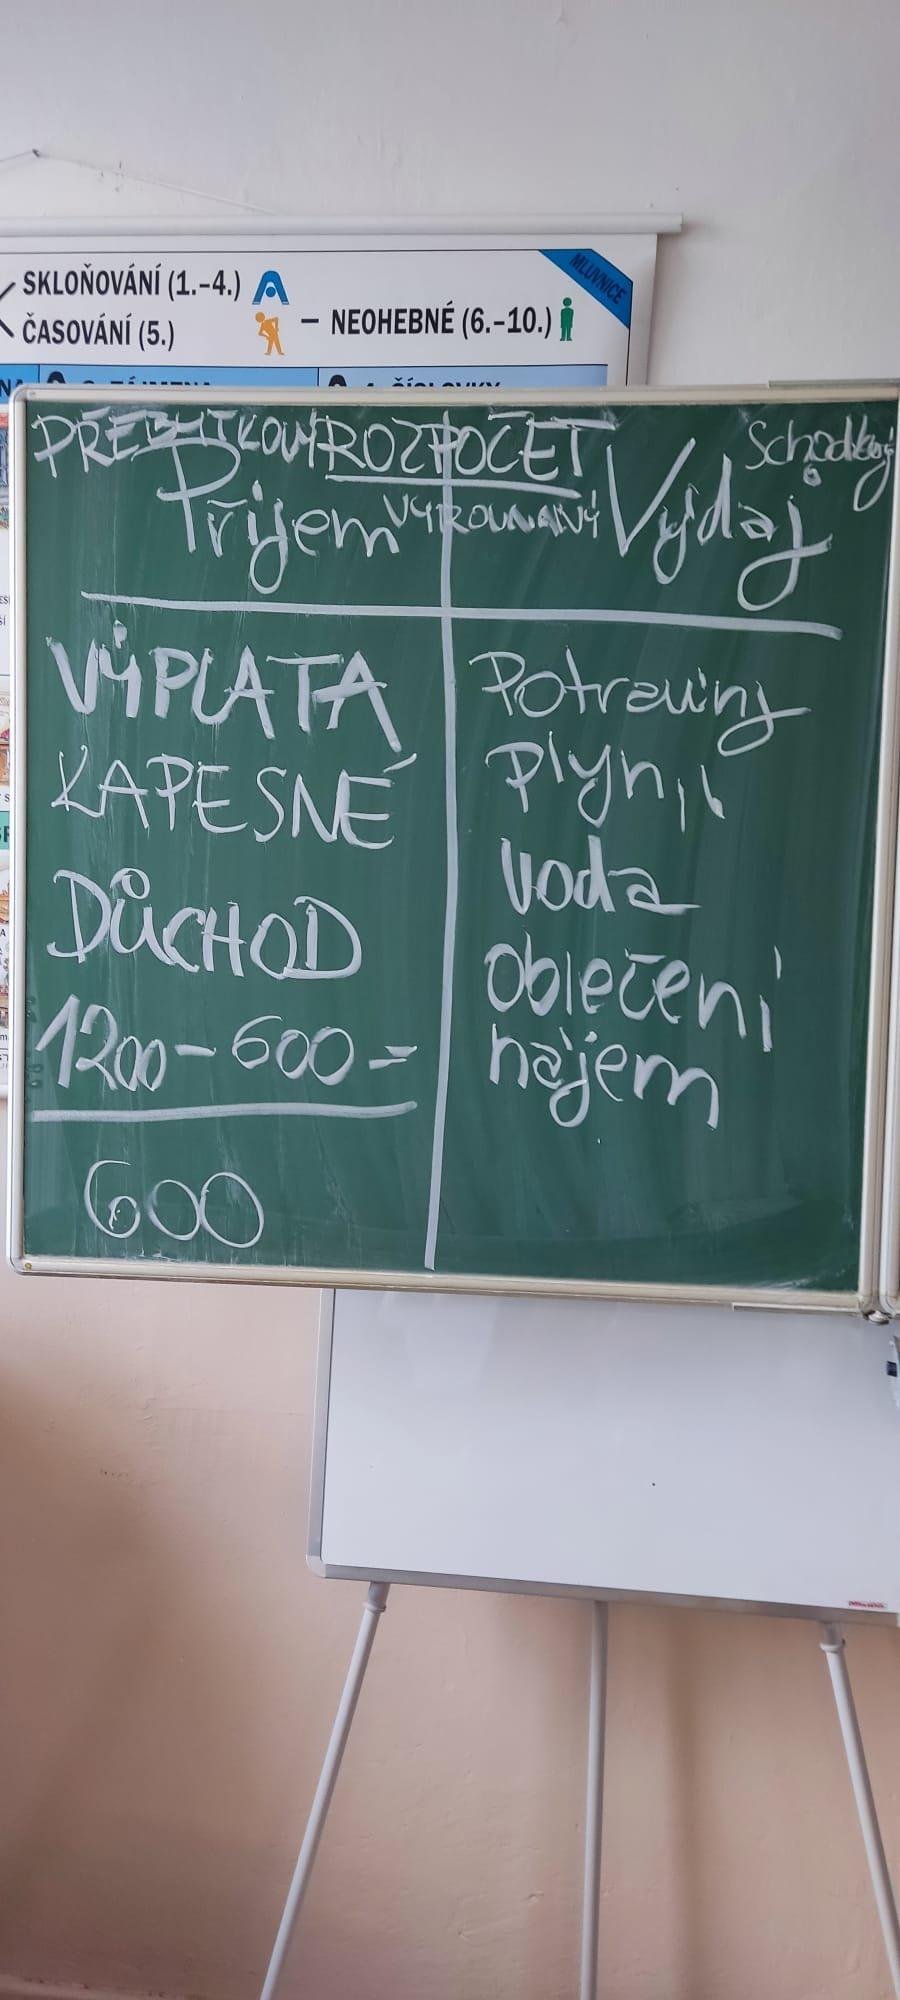 SKLOŇOVÁNÍ (1.–4.)
ČASOVÁNÍ (5.)
– NEOHEBNÉ (6.–10.)
MLUVNICE
PŘEBYTKOVÝ ROZPOČET Schodkový
Příjem VYROVNANÝ Výdaj
VÝPLATA
KAPESNÉ
DŮCHOD
1200 – 600 =
600
Potraviny
Plyn
Voda
Oblečení
nájem